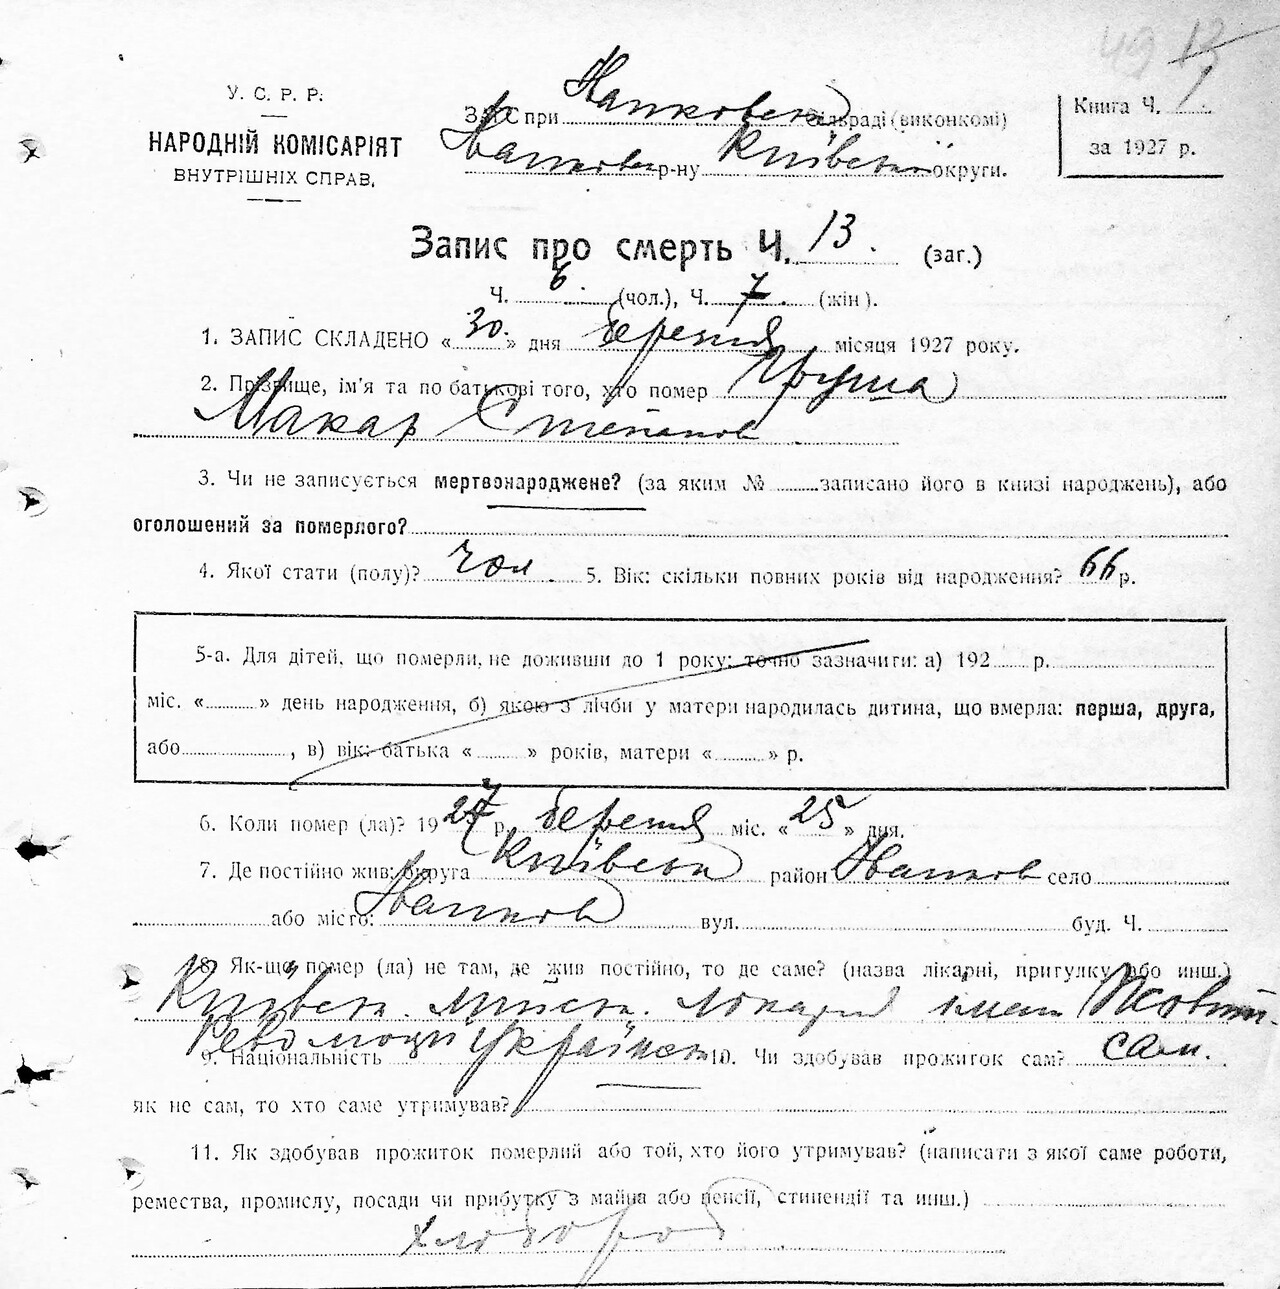 49 13
У. С. Р. Р.
НАРОДНІЙ КОМІСАРІЯТ
ВНУТРІШНІХ СПРАВ.
ЗАГС при сільраді (виконкомі)
Іванков р-ну Київськ округи.
Книга Ч. 1
за 1927 р.
Запис про смерть Ч. 13. (заг.)
Ч. 6. (чол.), Ч. 7. (жін).
1. ЗАПИС СКЛАДЕНО «30.» дня березня місяця 1927 року.
2. Прізвище, ім'я та по батькові того, хто помер Груша
Макар Степанов
3. Чи не записується мертвонароджене? (за яким № записано його в книзі народжень), або
оголошений за померлого?
4. Якої стати (полу)? чол. 5. Вік: скільки повних років від народження? 66 р.
5-а. Для дітей, що померли, не доживши до 1 року: точно зазначити: а) 192 р.
міс. « » день народження, б) якою з лічби у матери народилась дитина, що вмерла: перша, друга,
або , в) вік: батька « » років, матери « » р.
6. Коли помер (ла)? 1927 р. березня міс. «25» дня.
7. Де постійно жив: округа Київськ район Іванков село
або місто: Іванков вул. буд. Ч.
8. Як-що помер (ла) не там, де жив постійно, то де саме? (назва лікарні, притулку або инш.)
Київськ. міськ. лікарня імени Жовтн.
Революції
9. Національність Українец 10. Чи здобував прожиток сам? сам.
як не сам, то хто саме утримував?
11. Як здобував прожиток померлий або той, хто його утримував? (написати з якої саме роботи,
ремества, промислу, посади чи прибутку з майна або пенсії, стипендії та инш.)
хлібороб